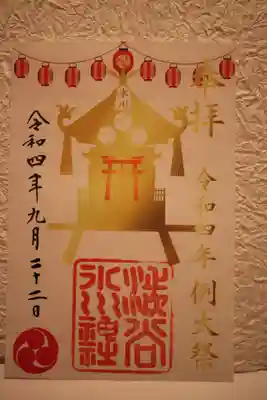 奉拝 令和四年例大祭
氷川
渋谷
氷川神社
令和四年九月二十二日